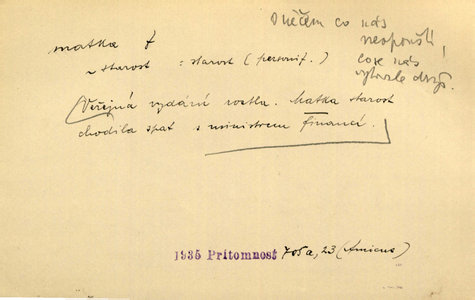 O něčem co nás
neopouští,
co se nás
vytrvale drží.
matka f
~ starost : starost (personif.)
Veřejná vydání rostla. Matka starost
chodila spat s ministrem financí.
1935 Přítomnost 705a, 23 (Amicus)